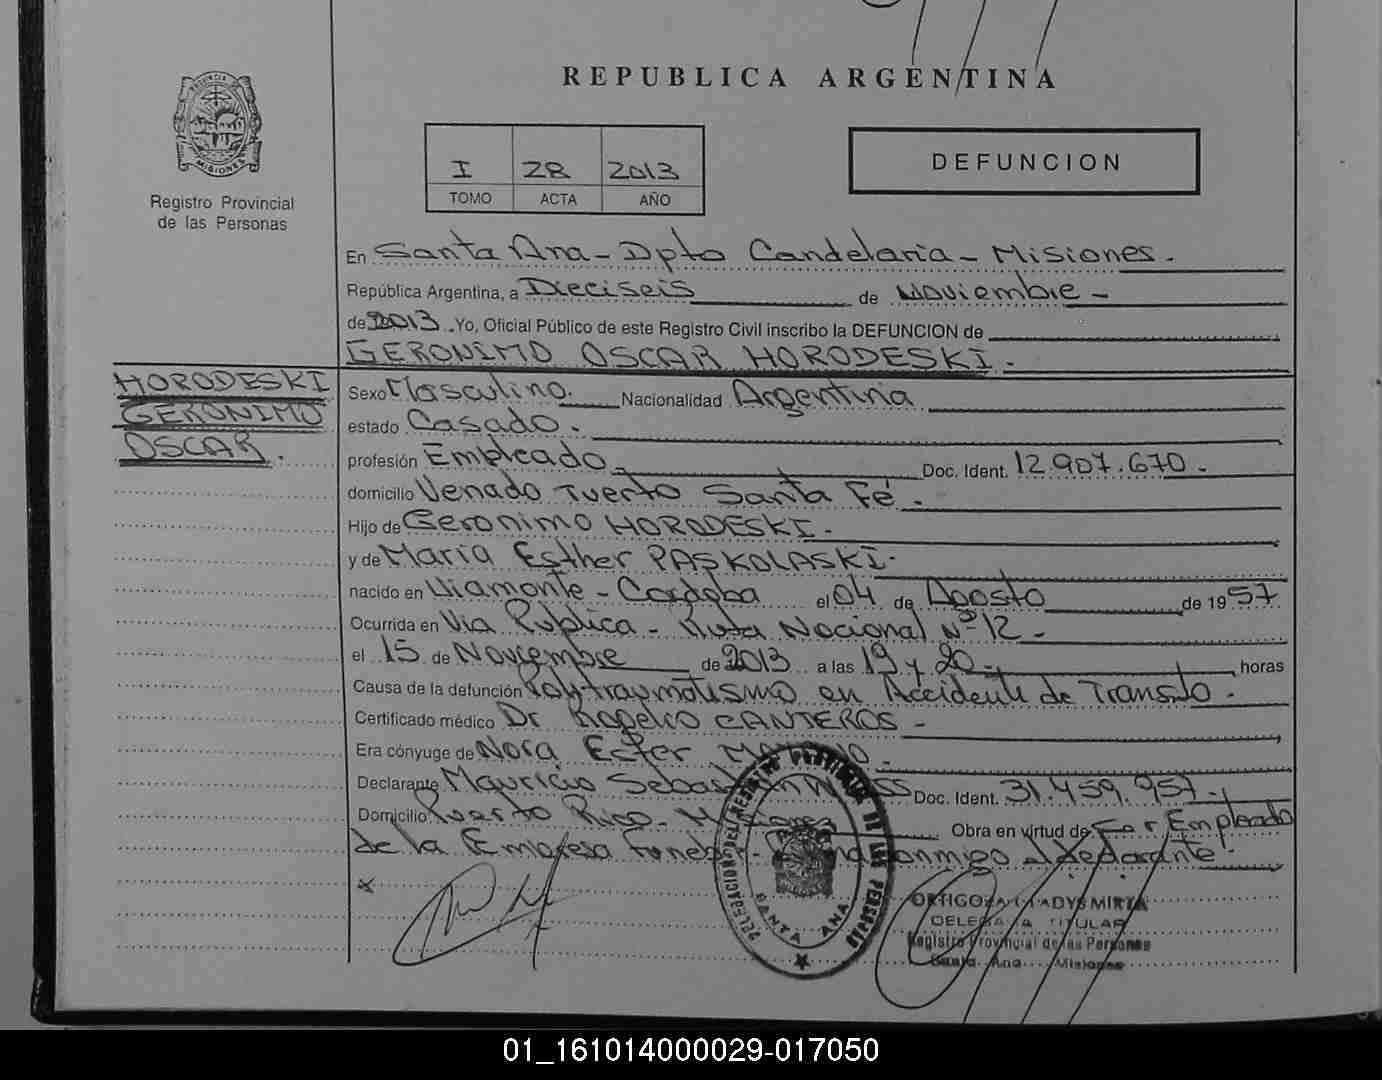 REPUBLICA ARGENTINA
PROVINCIA DE
MISIONES
Registro Provincial
de las Personas
I 28 2013
TOMO ACTA AÑO
DEFUNCION
En Santa Ana - Dpto Candelaria - Misiones.
República Argentina, a Dieciseis de Noviembre -
de 2013. Yo, Oficial Público de este Registro Civil inscribo la DEFUNCION de
GERONIMO OSCAR HORODESKI.
HORODESKI
GERONIMO
OSCAR.
Sexo Masculino. Nacionalidad Argentina
estado Casado.
profesión Empleado Doc. Ident. 12.907.670.
domicilio Venado Tuerto Santa Fé.
Hijo de Geronimo HORODESKI.
y de Maria Esther PASKOLASKI.
nacido en Viamonte - Cordoba el 04 de Agosto de 1957
Ocurrida en Via Publica - Ruta Nacional Nº 12 -
el 15 de Noviembre de 2013 a las 19 y 20 - horas
Causa de la defunción Politraumatismo en Accidente de Transito.
Certificado médico Dr Rogelio CANTEROS -
Era cónyuge de Nora Ester
Declarante Mauricio Doc. Ident. 31.459.957.
Domicilio Puerto Rico - Misiones Obra en virtud de Ser Empleado
de la Empresa conmigo el declarante.
DELEGACION DEL REGISTRO PROVINCIAL DE LAS PERSONAS
SANTA ANA
ORTIGOZA GLADYS MIRTA
DELEGADA TITULAR
Registro Provincial de las Personas
Santa Ana Misiones
01_161014000029-017050